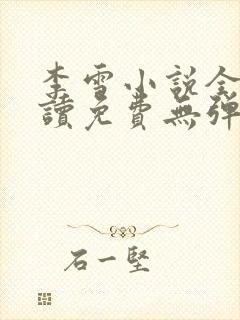 李雪小說全
讀免費無彈
石一堅